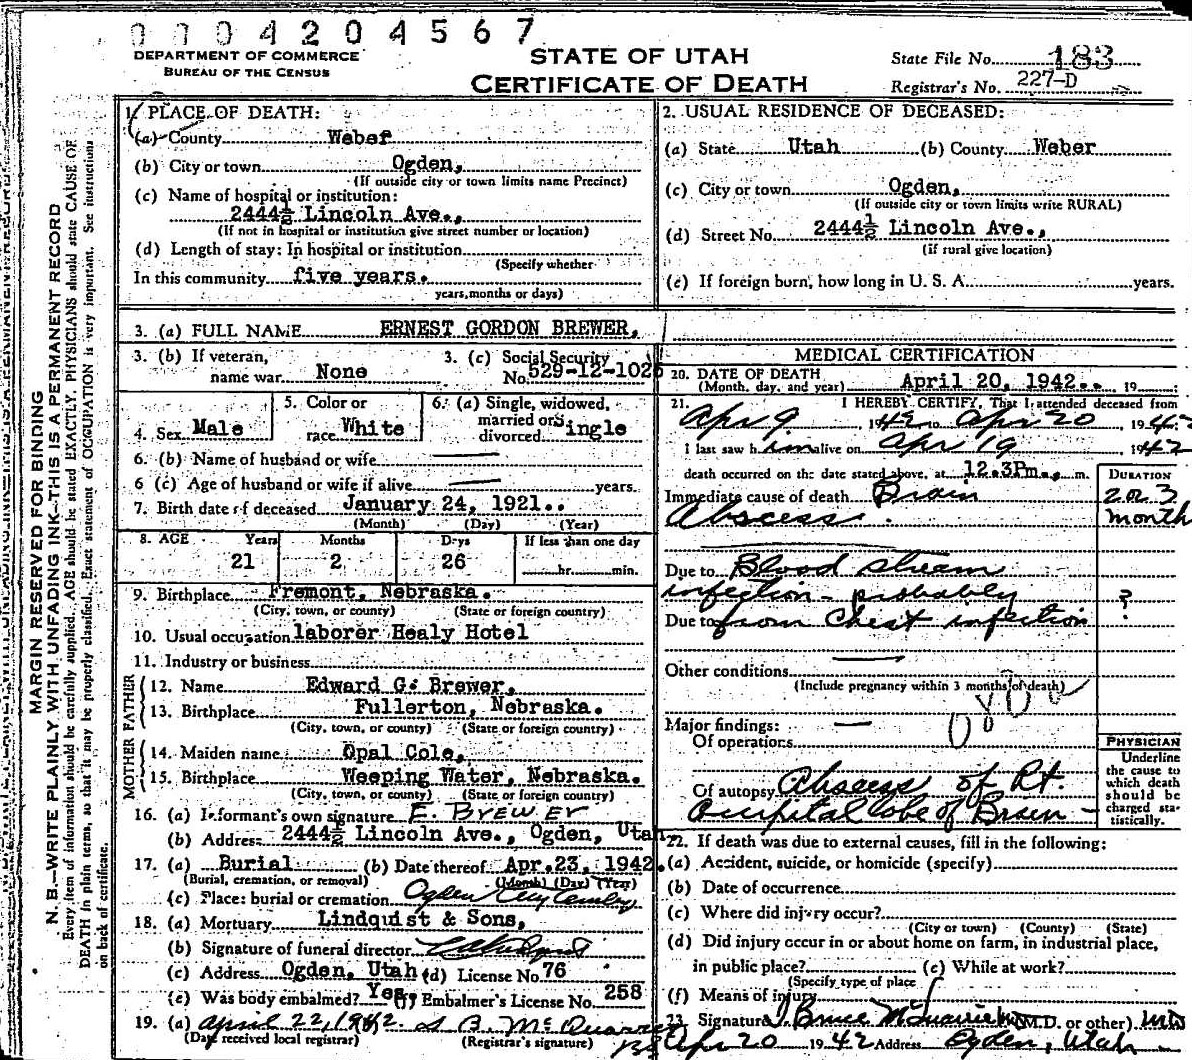 0004204567
DEPARTMENT OF COMMERCE
BUREAU OF THE CENSUS
STATE OF UTAH
CERTIFICATE OF DEATH
State File No. 183
Registrar's No. 227-D
MARGIN RESERVED FOR BINDING
N. B.—WRITE PLAINLY WITH UNFADING INK—THIS IS A PERMANENT RECORD
Every item of information should be carefully supplied. AGE should be stated EXACTLY. PHYSICIANS should state CAUSE OF
DEATH in plain terms, so that it may be properly classified. Exact statement of OCCUPATION is very important. See instructions
on back of certificate.
1. PLACE OF DEATH:
(a) County Weber
(b) City or town Ogden,
(If outside city or town limits name Precinct)
(c) Name of hospital or institution:
2444½ Lincoln Ave.,
(If not in hospital or institution give street number or location)
(d) Length of stay: In hospital or institution
(Specify whether
In this community five years.
years, months or days)
2. USUAL RESIDENCE OF DECEASED:
(a) State Utah (b) County Weber
(c) City or town Ogden,
(If outside city or town limits write RURAL)
(d) Street No. 2444½ Lincoln Ave.,
(if rural give location)
(e) If foreign burn, how long in U. S. A. years.
3. (a) FULL NAME ERNEST GORDON BREWER,
3. (b) If veteran, name war None
3. (c) Social Security No. 529-12-1025
4. Sex Male
5. Color or race White
6. (a) Single, widowed, married or divorced Single
6. (b) Name of husband or wife —
6 (c) Age of husband or wife if alive — years.
7. Birth date of deceased January 24, 1921..
(Month) (Day) (Year)
8. AGE Years Months Days If less than one day
21 2 26 hr. min.
9. Birthplace Fremont, Nebraska.
(City, town, or county) (State or foreign country)
10. Usual occupation laborer Healy Hotel
11. Industry or business
FATHER
12. Name Edward G. Brewer,
13. Birthplace Fullerton, Nebraska.
(City, town, or county) (State or foreign country)
MOTHER
14. Maiden name Opal Cole,
15. Birthplace Weeping Water, Nebraska.
(City, town, or county) (State or foreign country)
16. (a) Informant's own signature E. BREWER
(b) Address 2444½ Lincoln Ave., Ogden, Utah.
17. (a) Burial (b) Date thereof Apr. 23, 1942.
(Burial, cremation, or removal) (Month) (Day) (Year)
(c) Place: burial or cremation Ogden City Cemetery
18. (a) Mortuary Lindquist & Sons,
(b) Signature of funeral director
(c) Address Ogden, Utah (d) License No. 76
(e) Was body embalmed? Yes (f) Embalmer's License No. 258
19. (a) April 22, 1942.
(Date received local registrar) (Registrar's signature)
MEDICAL CERTIFICATION
20. DATE OF DEATH
(Month, day, and year) April 20, 1942.. 19
21. I HEREBY CERTIFY, That I attended deceased from
Apr 9, 1942 to Apr 20, 1942
I last saw him alive on Apr 19 1942
death occurred on the date stated above, at 12.3Pm., m.
DURATION
Immediate cause of death Brain
Abscess.
2 or 3
month
Due to Blood stream
infection - probably
?
Due to from Chest infection
Other conditions —
(Include pregnancy within 3 months of death)
Major findings: —
Of operations
Of autopsy Abscess of Rt.
occipital lobe of Brain -
PHYSICIAN
Underline
the cause to
which death
should be
charged sta-
tistically.
22. If death was due to external causes, fill in the following:
(a) Accident, suicide, or homicide (specify)
(b) Date of occurrence
(c) Where did injury occur?
(City or town) (County) (State)
(d) Did injury occur in or about home on farm, in industrial place,
in public place? (e) While at work?
(Specify type of place
(f) Means of injury
23 Signature J. Bruce McQuarrie (M.D. or other) MD
Apr 20 1942 Address Ogden, Utah